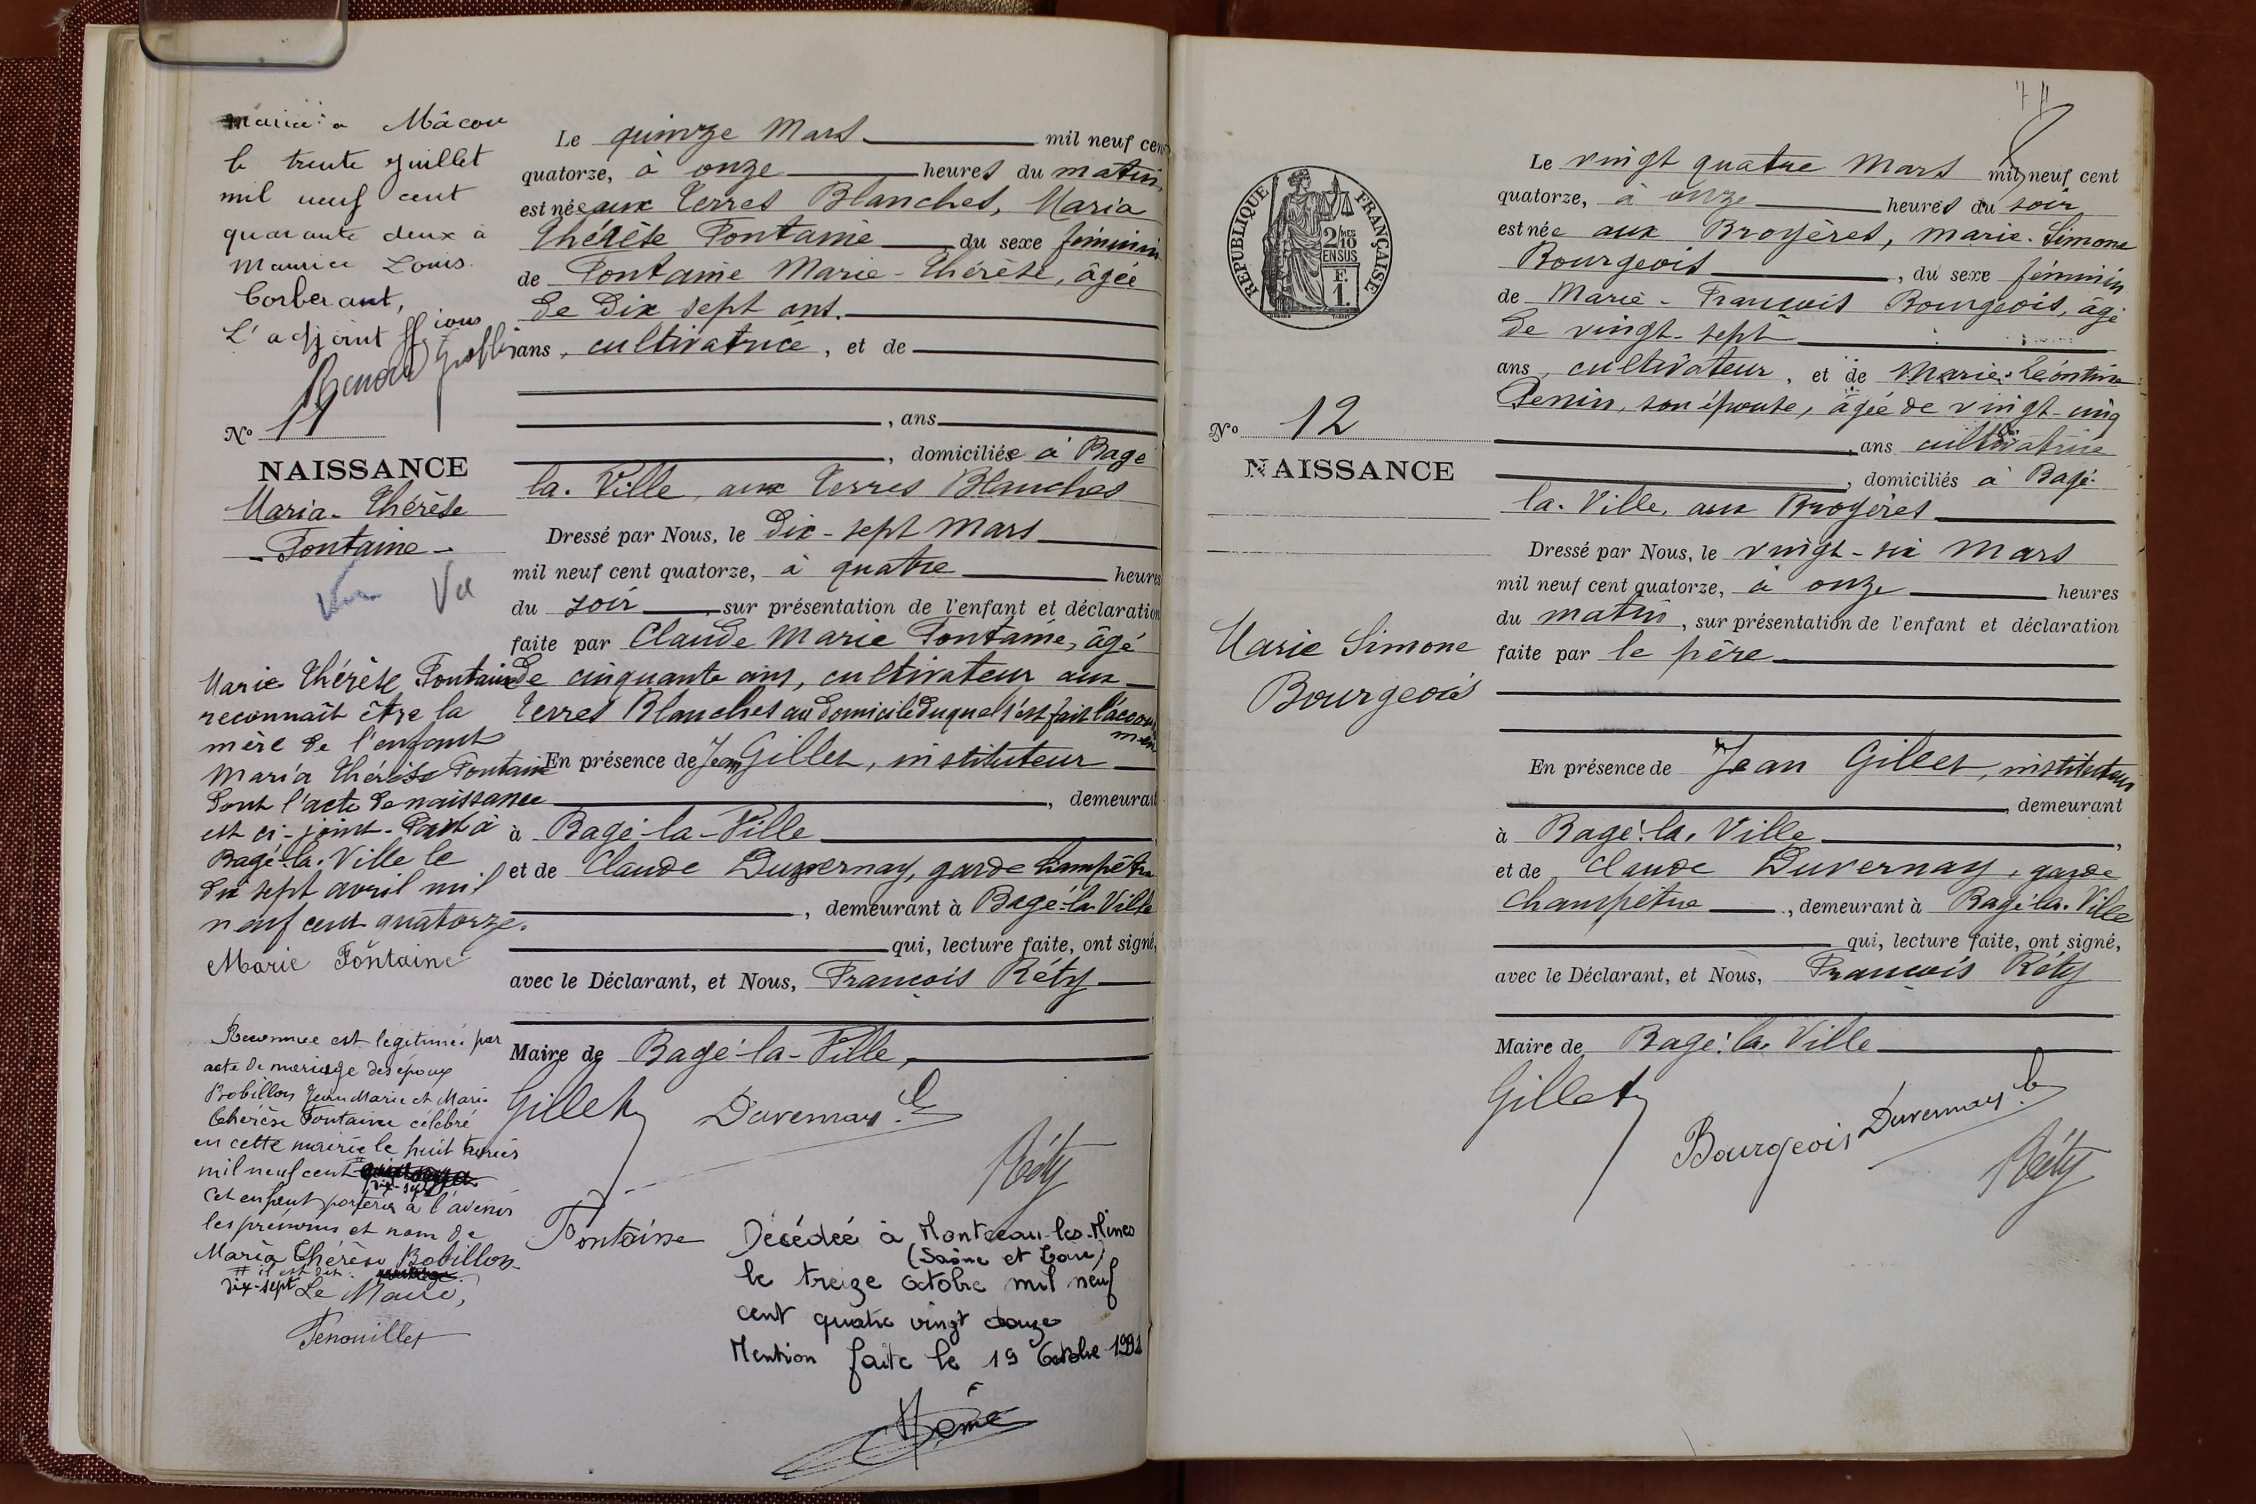 mariée à Mâcon
le trente Juillet
mil neuf cent
quarante deux à
Maurice Louis
Corberant,
L'adjoint ff ions
Nº 11
NAISSANCE
Maria-Thérèse
Fontaine
Vu
Marie Thérèse Fontaine
reconnaît être la
mère de l'enfant
Maria Thérèse Fontaine
dont l'acte de naissance
est ci-joint. Fait à
Bagé-la-Ville le
dix sept avril mil
neuf cent quatorze.
Marie Fontaine
Reconnue est légitimée par
acte de mariage des époux
Bobillon Jean Marie et Marie
Thérèse Fontaine célébré
en cette mairie le huit
mil neuf cent
dix-sept
Cet enfant portera à l'avenir
les prénoms et nom de
Maria Thérèse Bobillon
il est dit
dix-sept Le Maire,
Fenouillet
Le quinze Mars mil neuf cent
quatorze, à onze heures du matin,
est née aux Terres Blanches, Maria
Thérèse Fontaine du sexe féminin
de Fontaine Marie-Thérèse, âgée
de Dix sept ans.
ans, cultivatrice, et de
, ans
, domiciliée à Bagé
la-Ville, aux Terres Blanches
Dressé par Nous, le Dix-sept Mars
mil neuf cent quatorze, à quatre heures
du soir, sur présentation de l'enfant et déclaration
faite par Claude Marie Fontaine, âgé
de cinquante ans, cultivateur aux
Terres Blanches au domicile duquel s'est fait l'accou
men
En présence de Jean Gillet, instituteur
, demeurant
à Bagé-la-Ville
et de Claude Duvernay, garde champêtre
, demeurant à Bagé-la-Ville
qui, lecture faite, ont signé,
avec le Déclarant, et Nous, François Réty
Maire de Bagé-la-Ville,
Gillet Duvernay
Réty
Fontaine
Décédée à Montceau-les-Mines
(Saône et Loire)
le treize octobre mil neuf
cent quatre vingt douze
Mention faite le 19 Octobre 1992
RÉPUBLIQUE FRANÇAISE
2/10 MES
EN SUS
F.
1.
Nº 12
NAISSANCE
Marie Simone
Bourgeois
Le vingt quatre Mars mil neuf cent
quatorze, à onze heures du soir
est née aux Broyères, Marie-Simone
Bourgeois, du sexe féminin
de Marie-François Bourgeois, âgé
de vingt-sept
ans, cultivateur, et de Marie-Léontine
Penin, son épouse, âgée de vingt-cinq
, ans cultivatrice
, domiciliés à Bagé-
la-Ville, aux Broyères
Dressé par Nous, le vingt-six Mars
mil neuf cent quatorze, à onze heures
du matin, sur présentation de l'enfant et déclaration
faite par le père
En présence de Jean Gillet, instituteur
, demeurant
à Bagé-la-Ville,
et de Claude Duvernay, garde
champêtre, demeurant à Bagé-la-Ville
qui, lecture faite, ont signé,
avec le Déclarant, et Nous, François Réty
Maire de Bagé-la-Ville
Gillet
Bourgeois Duvernay
Réty